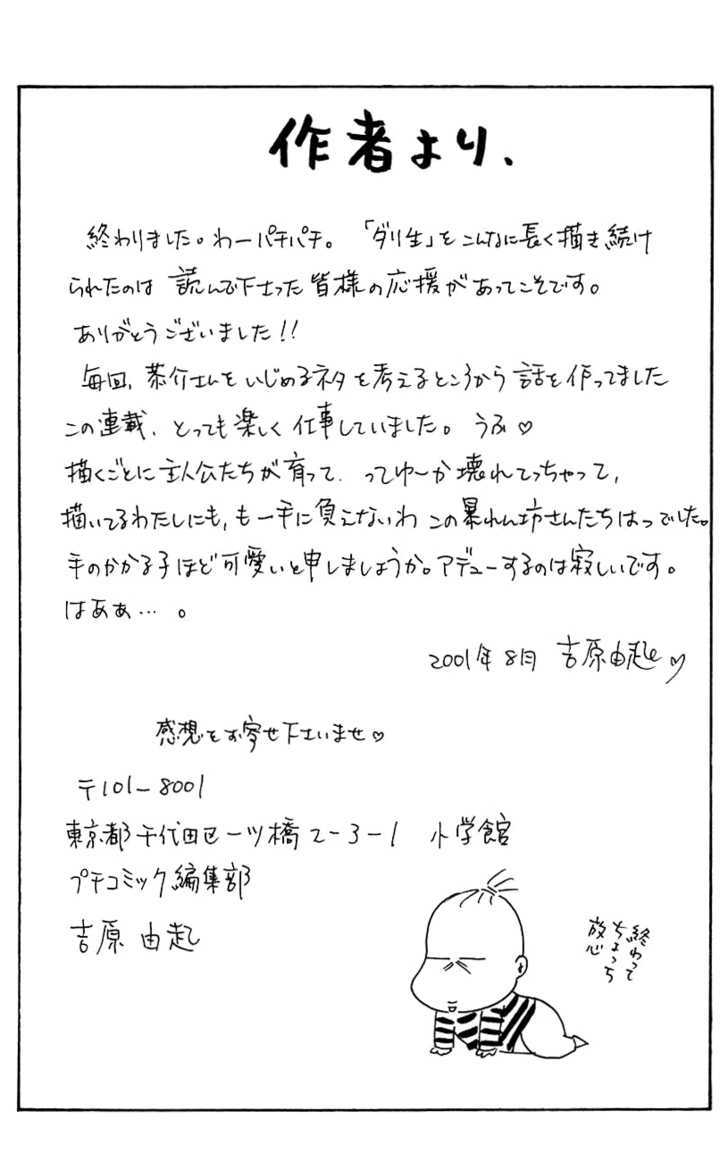 作者より、
終わりました。わーパチパチ。「ダリ生」をこんなに長く描き続け
られたのは 読んで下さった皆様の応援があってこそです。
ありがとうございました!!
毎回、恭介さんをいじめるネタを考えるところから話を作ってました
この連載、とっても楽しく仕事していました。うふ♡
描くごとに主人公たちが育って、ってゆーか壊れてっちゃって、
描いてるわたしにも、も一手に負えないわ この暴れん坊さんたちはっでした。
手のかかる子ほど可愛いと申しましょうか。アデューするのは寂しいです。
はあぁ…。
2001年8月 吉原由起♡
感想をお寄せ下さいませ♡
〒101-8001
東京都千代田区一ツ橋2-3-1 小学館
プチコミック編集部
吉原由起
終わって
ちょっち
放心